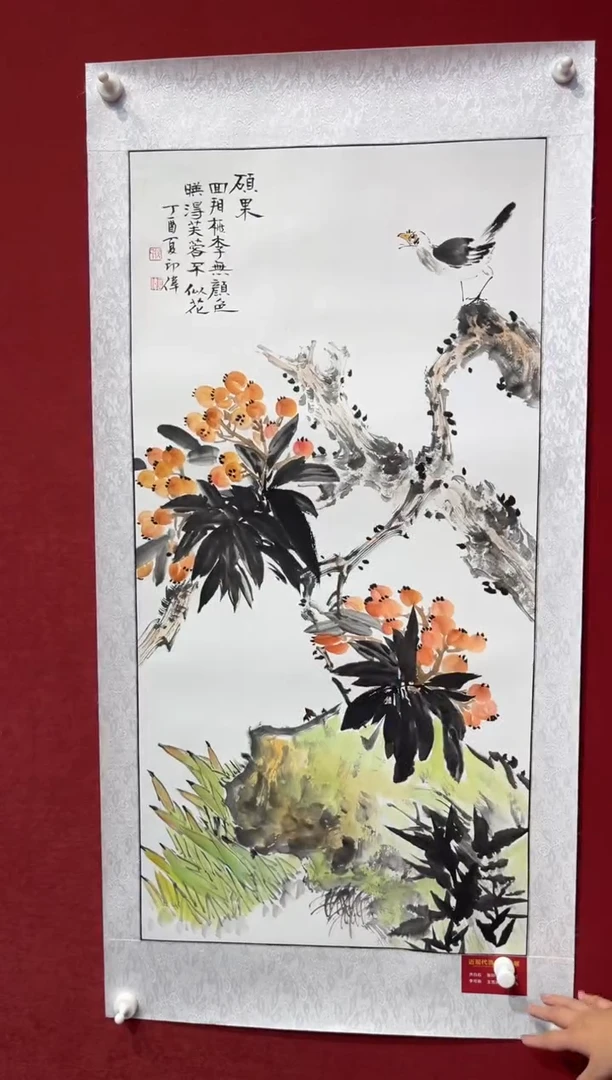 碩果
回用桃李無顏色
映得芙蓉不似花
丁酉夏印偉
近现代